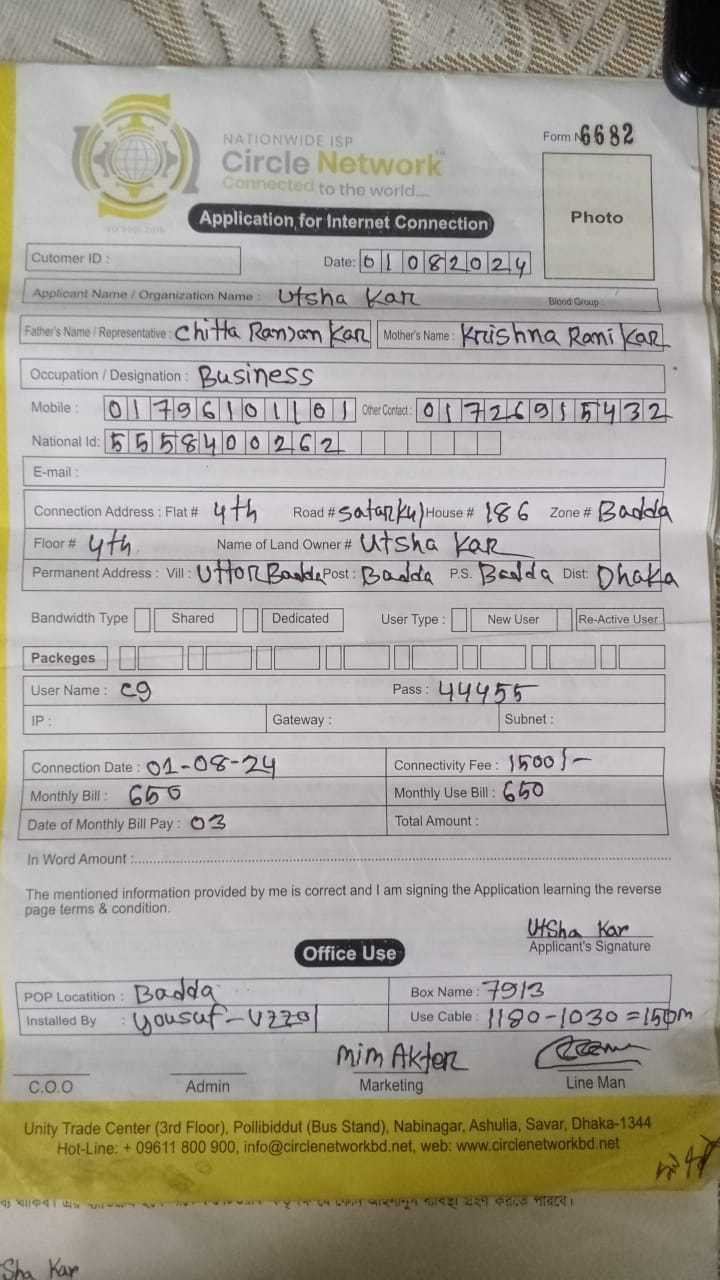 NATIONWIDE ISP
Circle Network
Connected to the world.....
ISO 9001:2015
Form N 6682
Photo
Application for Internet Connection
Cutomer ID :
Date: 01082024
Applicant Name / Organization Name : Utsha Kar Blood Group :
Father's Name / Representative : Chitta Ranjan Kar Mother's Name : Krishna Rani Kar
Occupation / Designation : Business
Mobile : 01796101101 Other Contact : 01726915432
National Id: 5558400262
E-mail :
Connection Address : Flat # 4th Road # Satarkul House # 186 Zone # Badda
Floor # 4th Name of Land Owner # Utsha Kar
Permanent Address : Vill : Uttor Badda Post : Badda P.S. Badda Dist: Dhaka
Bandwidth Type Shared Dedicated User Type : New User Re-Active User
Packeges
User Name : c9 Pass : 44455
IP : Gateway : Subnet :
Connection Date : 01-08-24 Connectivity Fee : 1500/-
Monthly Bill : 650 Monthly Use Bill : 650
Date of Monthly Bill Pay : 03 Total Amount :
In Word Amount :
The mentioned information provided by me is correct and I am signing the Application learning the reverse
page terms & condition.
Utsha Kar
Applicant's Signature
Office Use
POP Locatition : Badda Box Name : 7913
Installed By : Yousuf-Uzzol Use Cable : 1180-1030=150m
Mim Akter
C.O.O Admin Marketing Line Man
Unity Trade Center (3rd Floor), Pollibiddut (Bus Stand), Nabinagar, Ashulia, Savar, Dhaka-1344
Hot-Line: + 09611 800 900, info@circlenetworkbd.net, web: www.circlenetworkbd.net
Sha Kar